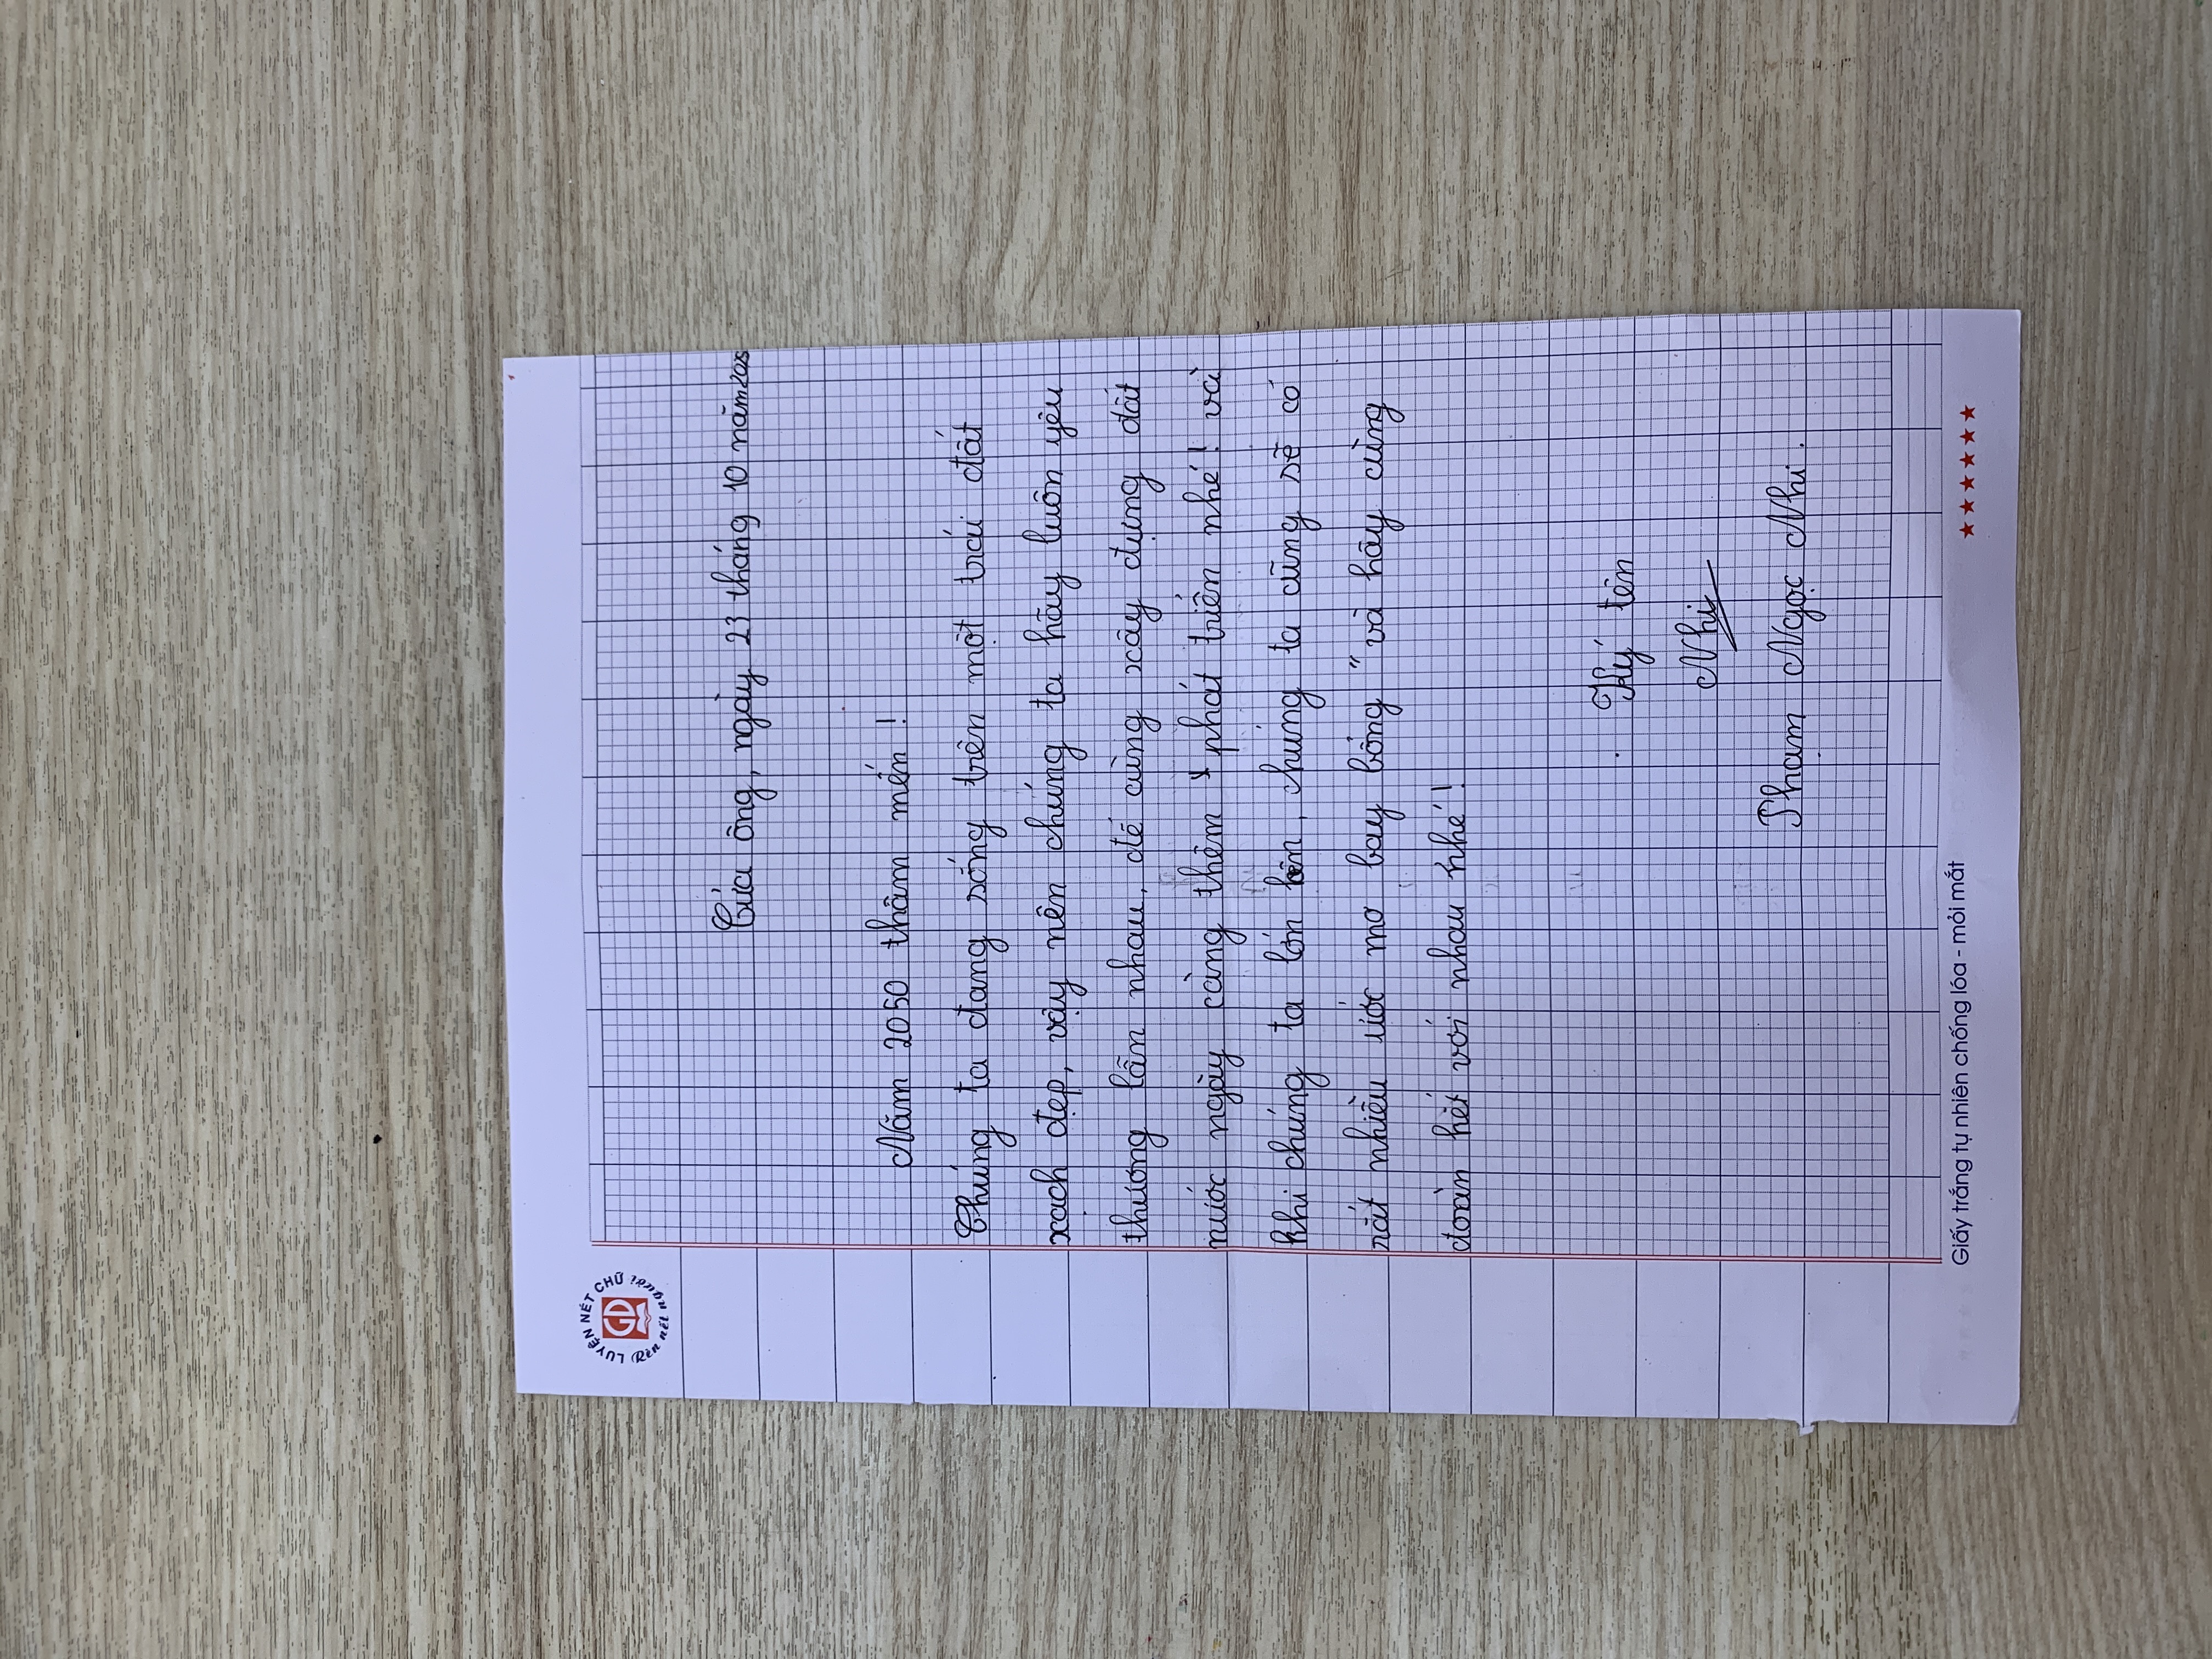 LUYỆN NÉT CHỮ
Rèn nết người
GD
Cửa ông, ngày 23 tháng 10 năm 205
Năm 2050 thâm mến !
Chúng ta đang sống trên một trái đất
xạch đẹp, vậy nên chúng ta hãy luôn yêu
thương lẫn nhau, để cùng xây dựng đất
nước ngày càng thêm phát triển nhé ! và
khi chúng ta lớn lên, chúng ta cũng sẽ có
rất nhiều ước mơ bay bổng " và hãy cùng
đoàn hết với nhau nhé !
Ký tên
Nhi
Phạm Ngọc Nhi .
Giấy trắng tự nhiên chống lóa - mỏi mắt